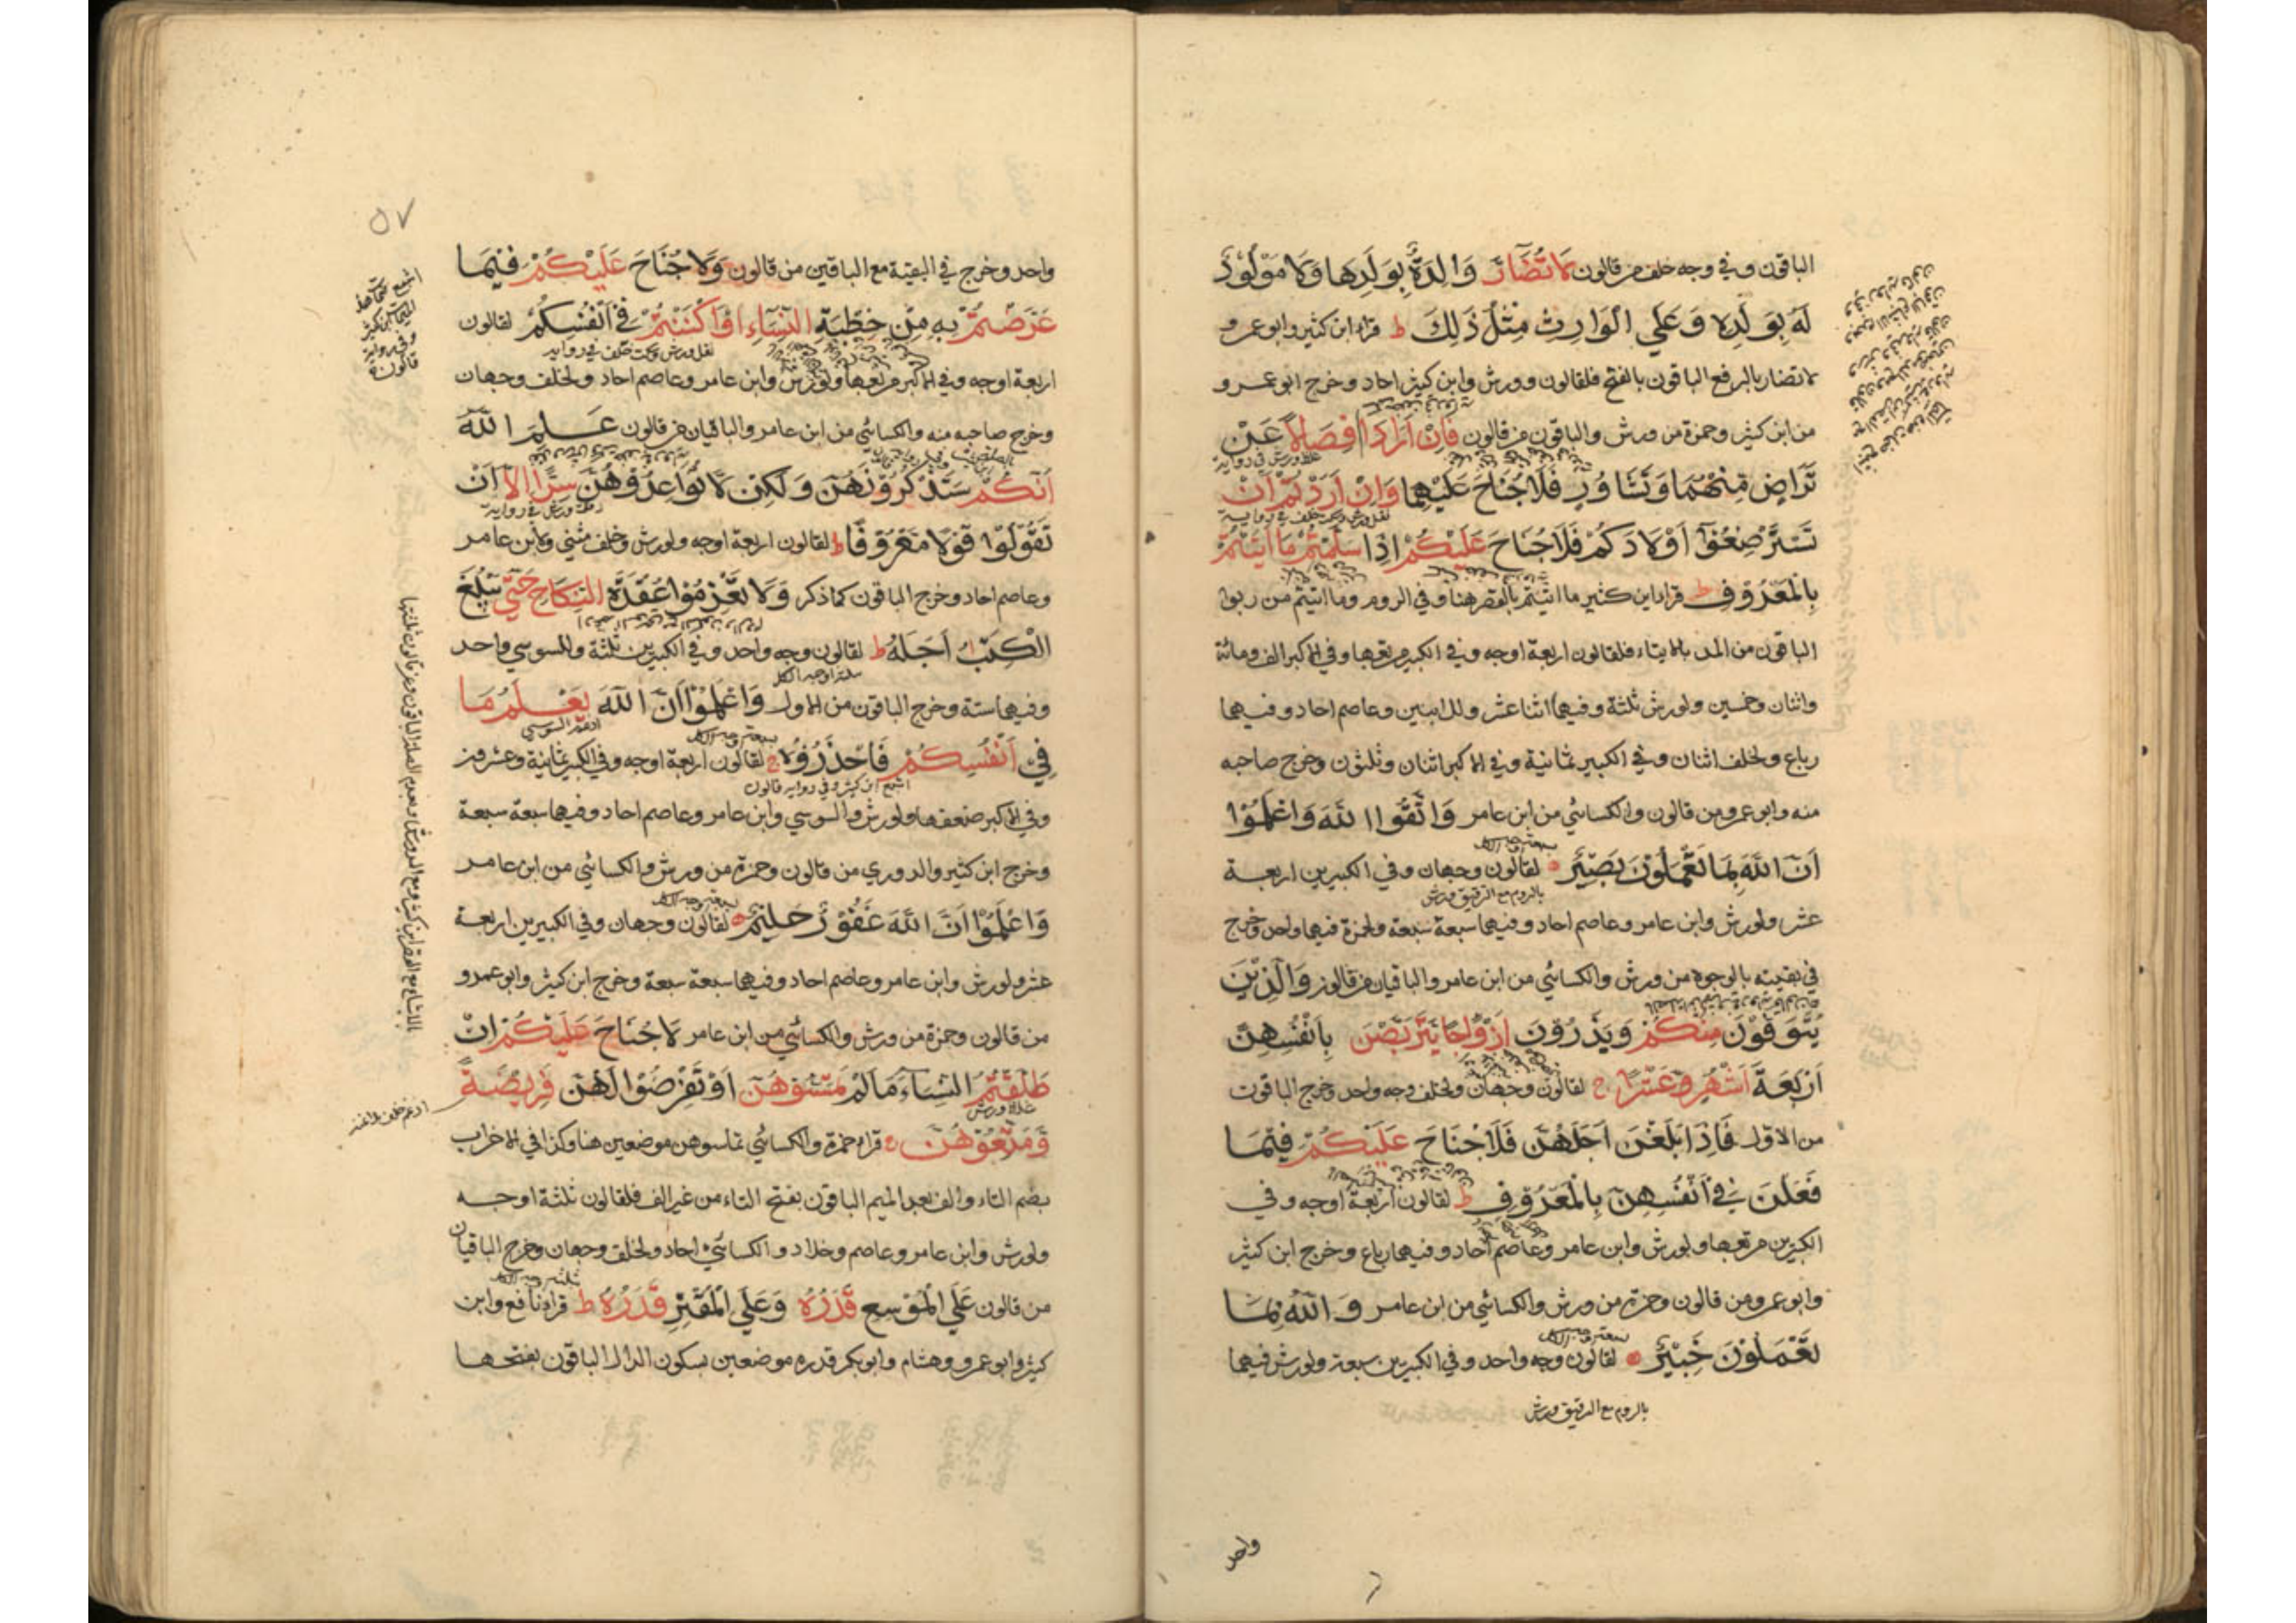 الباقون وفي وجه خلف من قالون لا تُضَآرَّ وَالِدَةٌ بِوَلَدِهَا وَلَا مَوْلُودٌ
لَهُ بِوَلَدِهِ وَعَلَي الْوَارِثِ مِثْلُ ذَلِكَ ط قرا ابن كثير وابو عمرو
لا تضار بالرفع الباقون بالفتح فلقالون وورش وابن كثير احاد وخرج ابو عمرو
من ابن كثير وحمزة من ورش والباقون من قالون فَاِنْ اَرَادَا فِصَالًا عَنْ
تَرَاضٍ مِنْهُمَا وَتَشَاوُرٍ فَلَا جُنَاحَ عَلَيْهِمَا وَاِنْ اَرَدْتُمْ اَنْ
نقل ورش وسكت خلف في رواية
تَسْتَرْضِعُوْٓا اَوْلَادَكُمْ فَلَا جُنَاحَ عَلَيْكُمْ اِذَا سَلَّمْتُمْ مَا اٰتَيْتُمْ
بِالْمَعْرُوْفِ ط قرا ابن كثير ما اتيتم بالقصر هنا وفي الروم وما اتيتم من ربوا
الباقون من المد بالايتاء فلقالون اربعة اوجه وفي الكبير مربعها وفي الاكبر الف ومائة
واثنان وخمسين ولورش ثلثة وفيهما اثنا عشر وللابنين وعاصم احاد وفيهما
رباع ولخلف اثنان وفي الكبير ثمانية وفي الاكبر اثنان وثلثون وخرج صاحبه
منه وابو عمرو من قالون والكسائي من ابن عامر وَاتَّقُوا اللّٰهَ وَاعْلَمُوْٓا
اَنَّ اللّٰهَ بِمَا تَعْمَلُوْنَ بَصِيْرٌ لقالون وجهان وفي الكبيرين اربعة
بالروم مع الترقيق ورش
عشر ولورش وابن عامر وعاصم احاد وفيهما سبعة سبعة ولحمزة فيهما واحد وخرج
في بقيته بالوجوه من ورش والكسائي من ابن عامر والباقيان من قالون وَالَّذِيْنَ
يُتَوَفَّوْنَ مِنْكُمْ وَيَذَرُوْنَ اَزْوَاجًا يَتَرَبَّصْنَ بِاَنْفُسِهِنَّ
اَرْبَعَةَ اَشْهُرٍ وَعَشْرًا ج لقالون وجهان ولخلف وجه واحد وخرج الباقون
من الاول فَاِذَا بَلَغْنَ اَجَلَهُنَّ فَلَا جُنَاحَ عَلَيْكُمْ فِيْمَا
فَعَلْنَ فِيْٓ اَنْفُسِهِنَّ بِالْمَعْرُوْفِ ط لقالون اربعة اوجه وفي
الكبيرين مربعها ولورش وابن عامر وعاصم احاد وفيهما رباع وخرج ابن كثير
وابو عمرو من قالون وحمزة من ورش والكسائي من ابن عامر وَاللّٰهُ بِمَا
تَعْمَلُوْنَ خَبِيْرٌ لقالون وجه واحد وفي الكبيرين سبعة ولورش فيهما
بالروم مع الترقيق ورش
واحد
٥٧
واحد وخرج في البقية مع الباقين من قالون وَلَا جُنَاحَ عَلَيْكُمْ فِيْمَا
عَرَّضْتُمْ بِهِ مِنْ خِطْبَةِ النِّسَآءِ اَوْ اَكْنَنْتُمْ فِيْٓ اَنْفُسِكُمْ لقالون
نقل ورش وسكت خلف في رواية
اربعة اوجه وفي الاكبر مربعها ولورش وابن عامر وعاصم احاد ولخلف وجهان
وخرج صاحبه منه والكسائي من ابن عامر والباقيان من قالون عَلِمَ اللّٰهُ
اَنَّكُمْ سَتَذْكُرُوْنَهُنَّ وَلٰكِنْ لَّا تُوَاعِدُوْهُنَّ سِرًّا اِلَّآ اَنْ
تَقُوْلُوْا قَوْلًا مَعْرُوْفًا ط لقالون اربعة اوجه ولورش وخلف مثني ولابن عامر
وعاصم احاد وخرج الباقون كما ذكر وَلَا تَعْزِمُوْا عُقْدَةَ النِّكَاحِ حَتّٰي يَبْلُغَ
الْكِتٰبُ اَجَلَهُ ط لقالون وجه واحد وفي الكبيرين ثلثة وللسوسي واحد
وفيهما ستة وخرج الباقون من الاول وَاعْلَمُوْٓا اَنَّ اللّٰهَ يَعْلَمُ مَا
ادغم السوسي
فِيْٓ اَنْفُسِكُمْ فَاحْذَرُوْهُ ج لقالون اربعة اوجه وفي الكبير ثمانية وعشرون
اشبع ابن كثير وفي رواية قالون
وفي الاكبر ضعفها ولورش والسوسي وابن عامر وعاصم احاد وفيهما سبعة سبعة
وخرج ابن كثير والدوري من قالون وحمزة من ورش والكسائي من ابن عامر
وَاعْلَمُوْٓا اَنَّ اللّٰهَ غَفُوْرٌ حَلِيْمٌ لقالون وجهان وفي الكبيرين اربعة
عشر ولورش وابن عامر وعاصم احاد وفيهما سبعة سبعة وخرج ابن كثير وابو عمرو
من قالون وحمزة من ورش والكسائي من ابن عامر لَا جُنَاحَ عَلَيْكُمْ اِنْ
طَلَّقْتُمُ النِّسَآءَ مَا لَمْ تَمَسُّوْهُنَّ اَوْ تَفْرِضُوْا لَهُنَّ فَرِيْضَةً
وَمَتِّعُوْهُنَّ ج قرا حمزة والكسائي تماسوهن موضعين هنا وكذا في الاحزاب
بضم التاء والف بعد الميم الباقون بفتح التاء من غير الف فلقالون ثلثة اوجه
ولورش وابن عامر وعاصم وخلاد والكسائي احاد ولخلف وجهان وخرج الباقيان
من قالون عَلَي الْمُوْسِعِ قَدَرُهُ وَعَلَي الْمُقْتِرِ قَدَرُهُ ط قرا نافع وابن
كثير وابو عمرو وهشام وابو بكر قدره موضعين بسكون الدال الباقون بفتحها